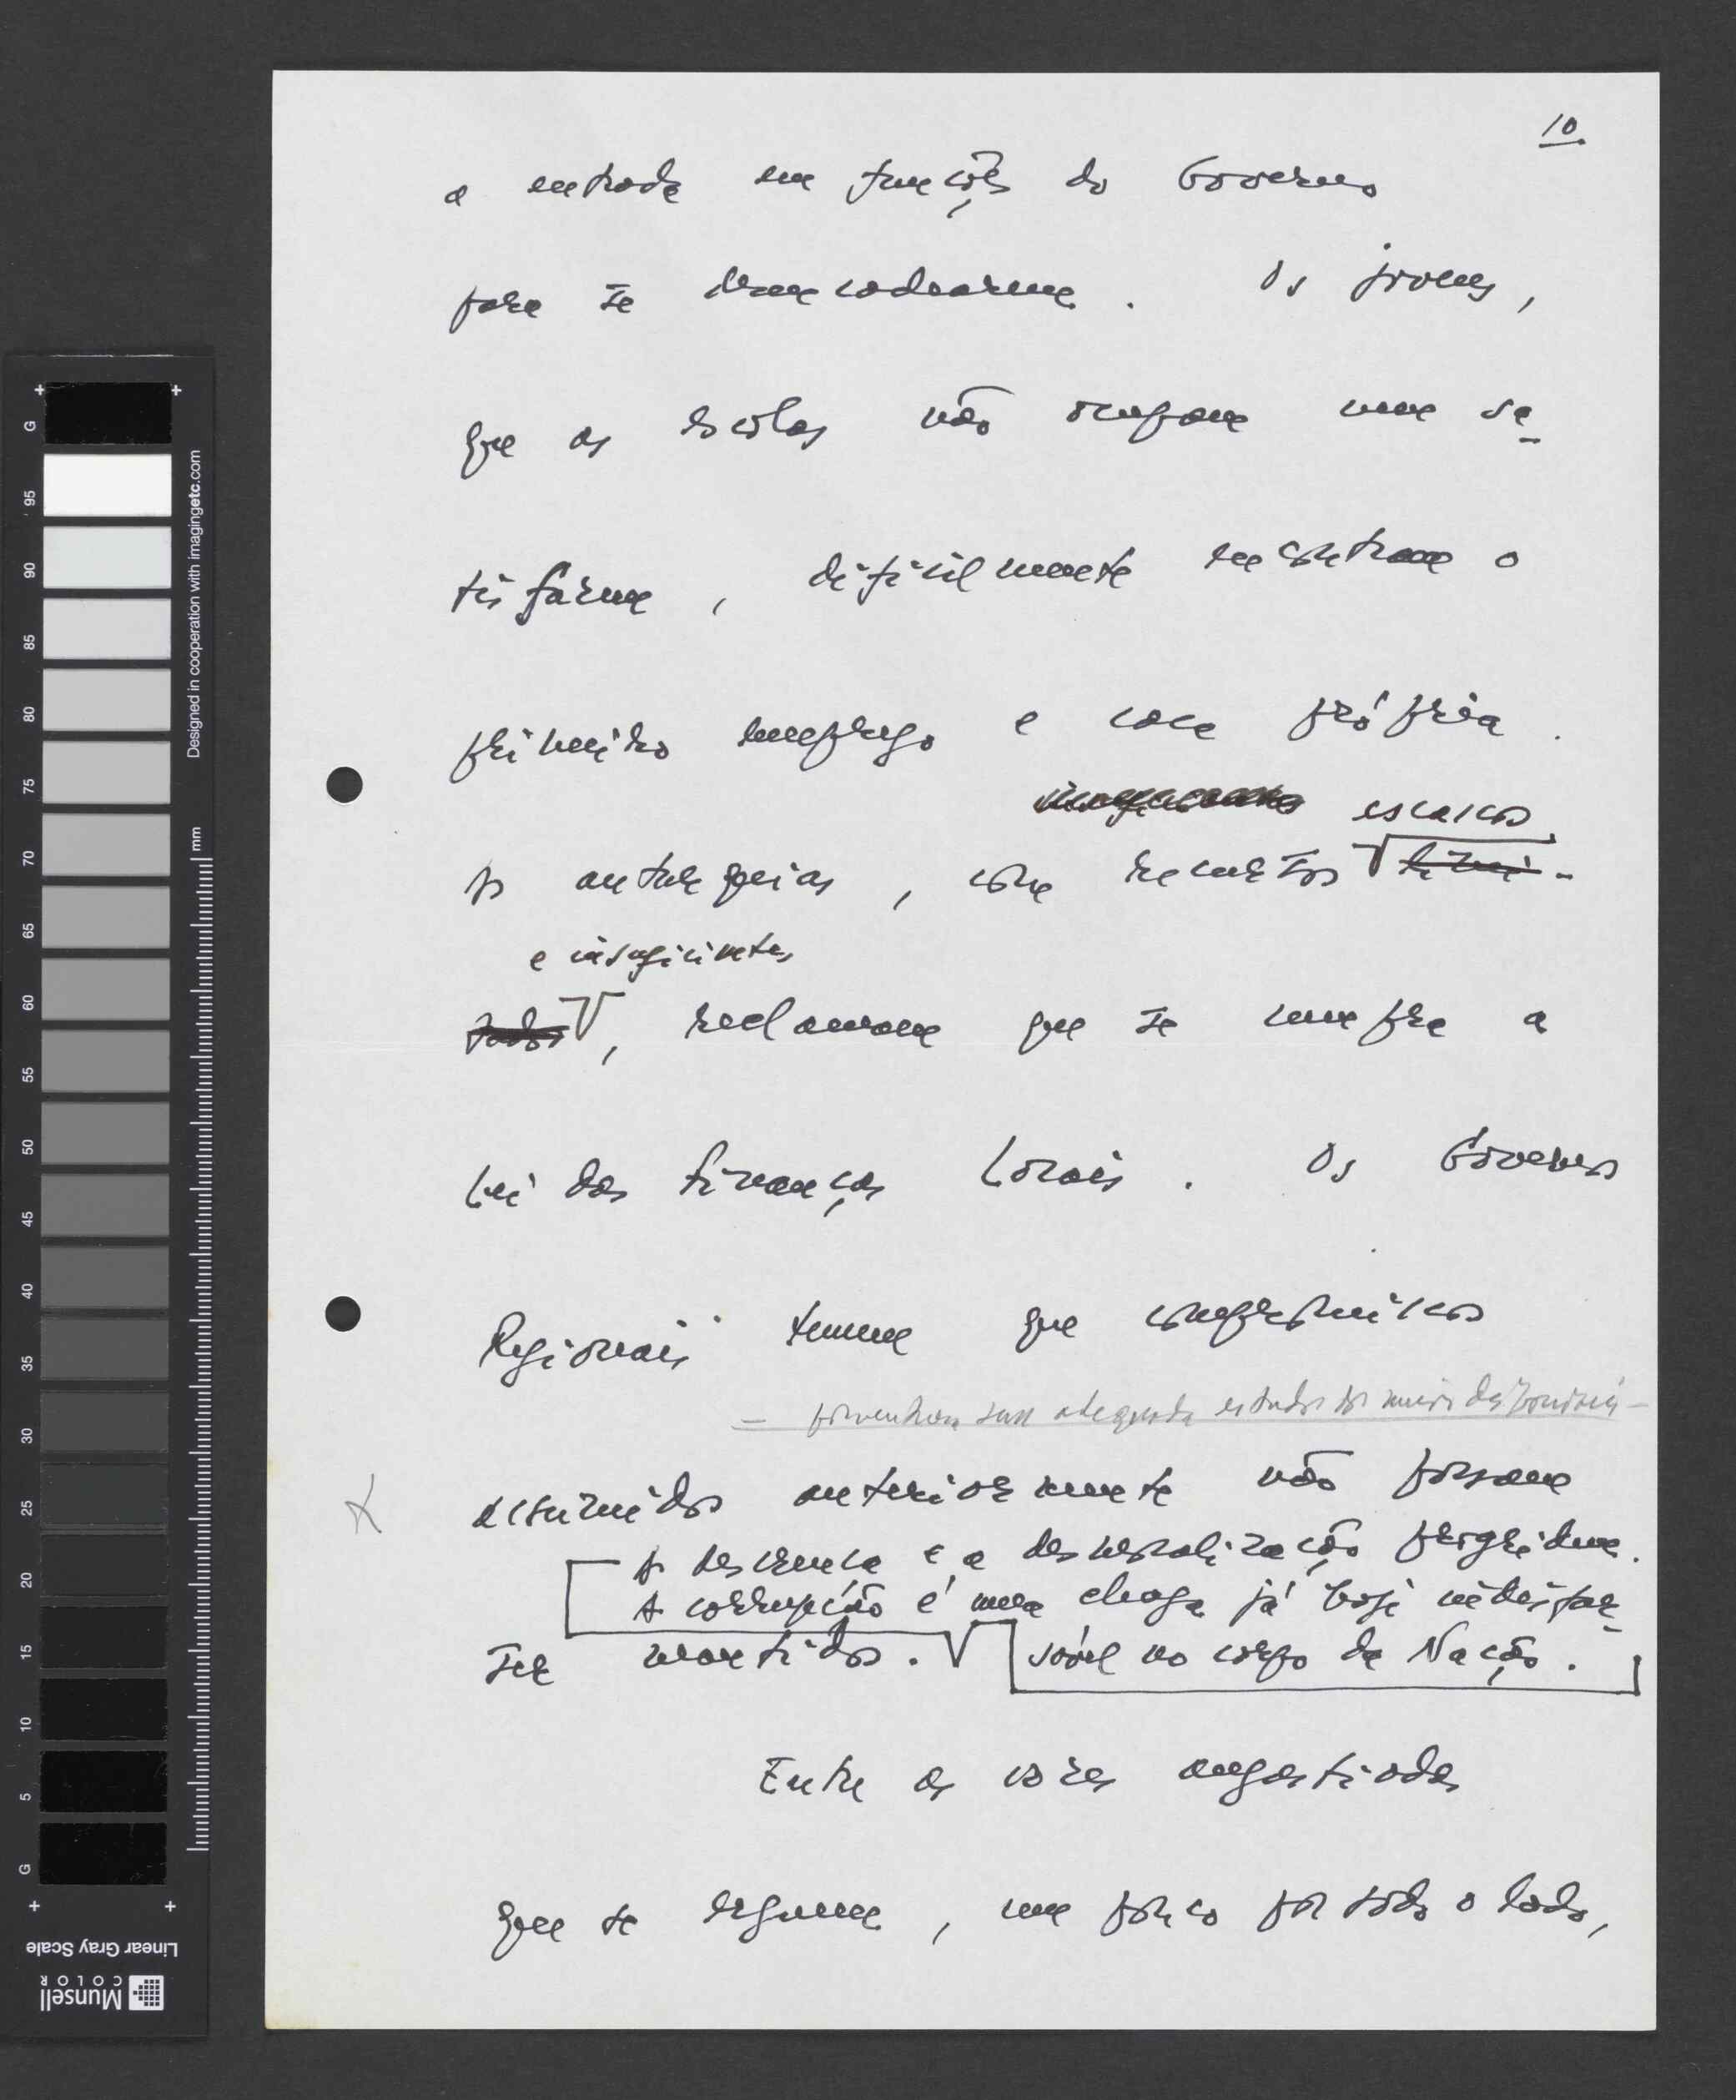 10
a entrada em funções do Governo
para se desencadearem. Os jovens,
que as escolas não ocupam nem sa-
tisfazem, dificilmente encontram o
primeiro emprego e casa própria.
escassos
As autarquias, com recursos limi-
e insuficientes
tados, reclamam que se cumpra a
Lei das Finanças Locais. Os Governos
Regionais temem que compromissos
– porventura sem adequado estudo dos meios disponíveis –
assumidos anteriormente não possam
A descrença e a desmoralização progridem.
A corrupção é uma chaga já hoje indisfar-
ser mantidos. sável no corpo da Nação.
Entre as vozes angustiadas
que se erguem, um pouco por todo o lado,
G 95 90 85 80 75 70 65 60 55 50 45 40 35 30 25 20 15 10 5 G
mm
Designed in cooperation with imagingetc.com
Linear Gray Scale
Munsell
COLOR